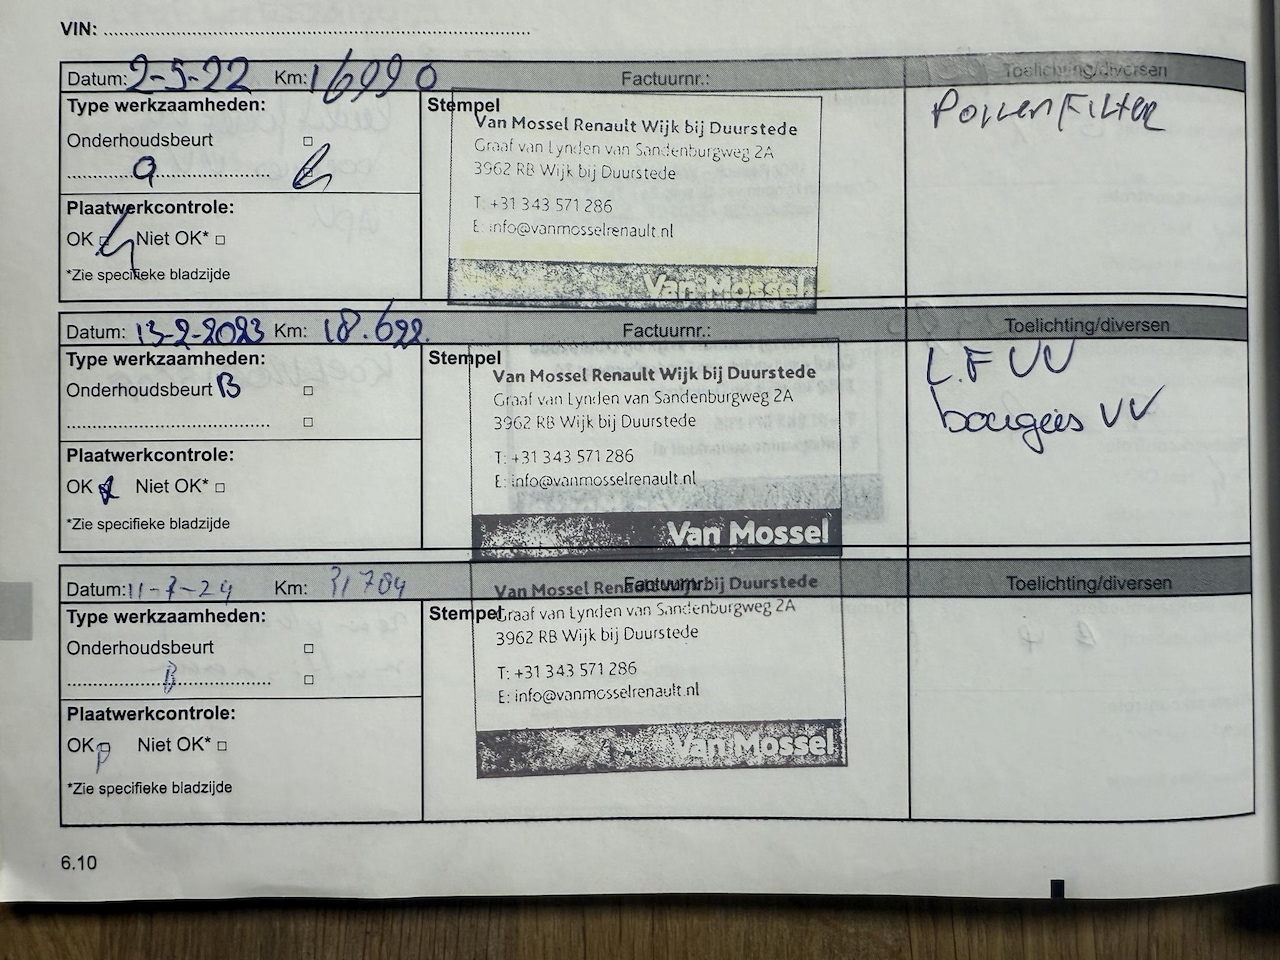 VIN:
Datum: 2-5-22 Km: 16990 Factuurnr.: Toelichting/diversen
Type werkzaamheden:
Onderhoudsbeurt
a
Plaatwerkcontrole:
OK Niet OK*
*Zie specifieke bladzijde
Stempel
Van Mossel Renault Wijk bij Duurstede
Graaf van Lynden van Sandenburgweg 2A
3962 RB Wijk bij Duurstede
T: +31 343 571 286
E: info@vanmosselrenault.nl
Van Mossel
Pollenfilter
Datum: 13-2-2023 Km: 18.622. Factuurnr.: Toelichting/diversen
Type werkzaamheden:
Onderhoudsbeurt B
Plaatwerkcontrole:
OK Niet OK*
*Zie specifieke bladzijde
Stempel
Van Mossel Renault Wijk bij Duurstede
Graaf van Lynden van Sandenburgweg 2A
3962 RB Wijk bij Duurstede
T: +31 343 571 286
E: info@vanmosselrenault.nl
Van Mossel
L.F VV
bougies VV
Datum: 11-7-24 Km: 31704 Factuurnr.: Toelichting/diversen
Type werkzaamheden:
Onderhoudsbeurt
B
Plaatwerkcontrole:
OK Niet OK*
*Zie specifieke bladzijde
Stempel
Van Mossel Renault Wijk bij Duurstede
Graaf van Lynden van Sandenburgweg 2A
3962 RB Wijk bij Duurstede
T: +31 343 571 286
E: info@vanmosselrenault.nl
Van Mossel
6.10